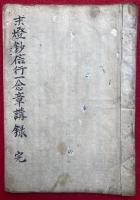 末燈鈔信行一念章講録 完